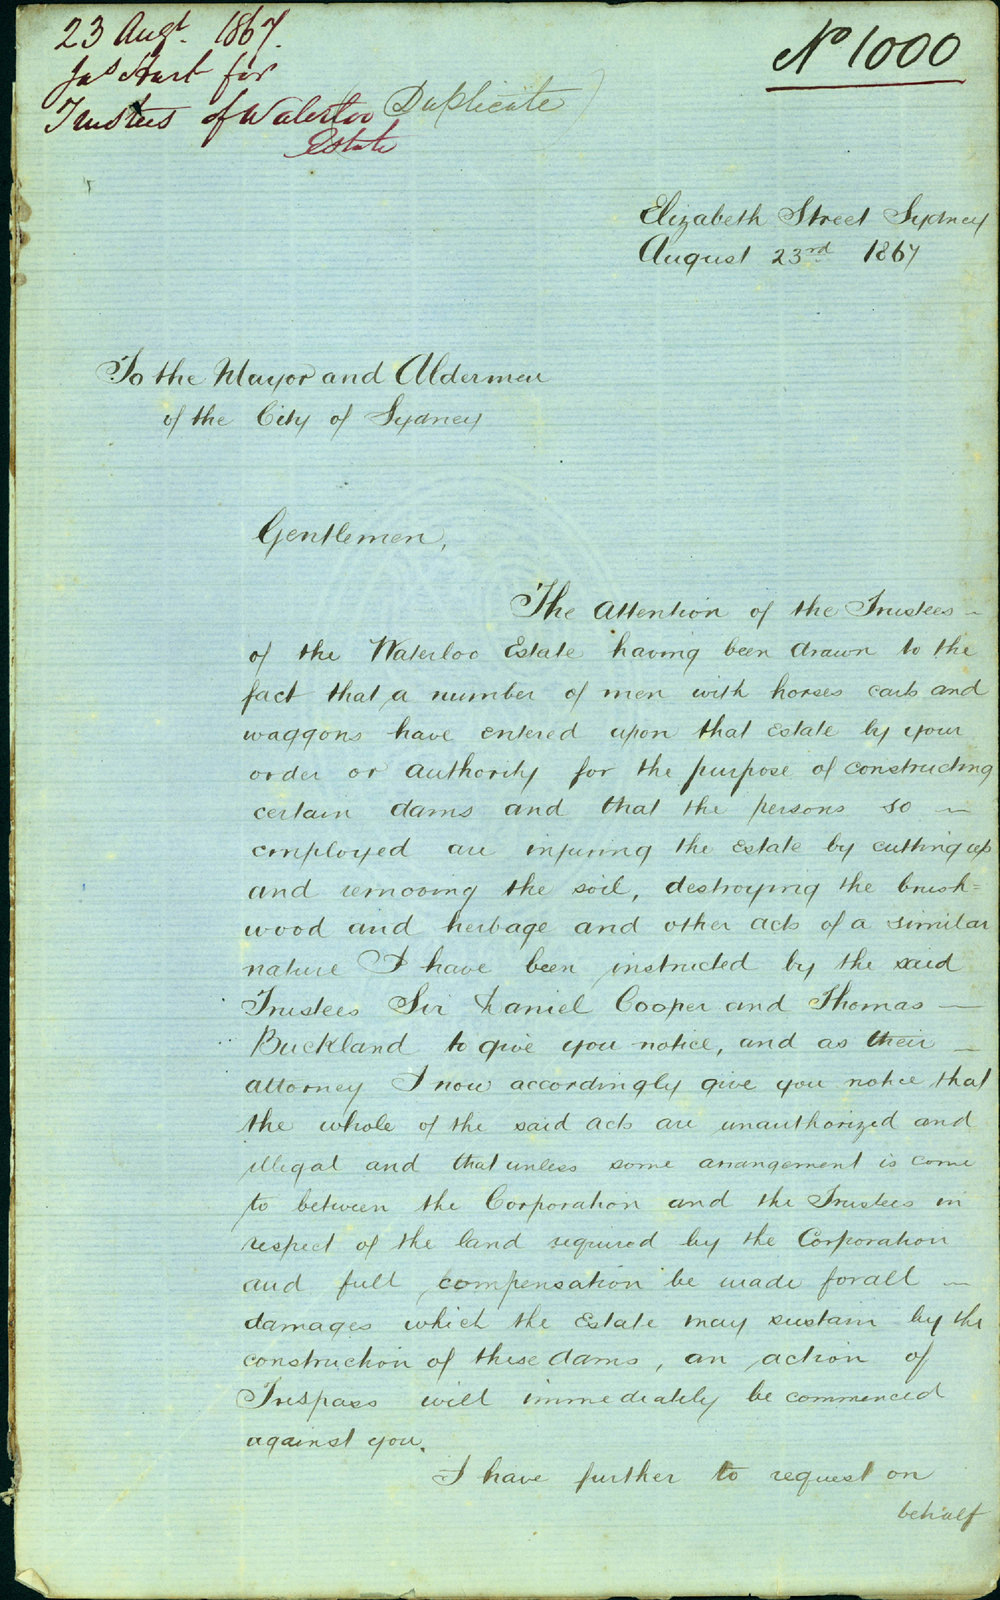 23 Augt. 1867.
Jas Hart for
Trustees of Waterloo
Estate
Duplicate
No 1000
Elizabeth Street Sydney
August 23rd 1867
To the Mayor and Aldermen
of the City of Sydney
Gentlemen,
The attention of the Trustees
of the Waterloo Estate having been drawn to the
fact that a number of men with horses carts and
waggons have entered upon that Estate by your
order or authority for the purpose of constructing
certain dams and that the persons so
employed are injuring the Estate by cutting up
and removing the soil, destroying the brush=
wood and herbage and other acts of a similar
nature I have been instructed by the said
Trustees Sir Daniel Cooper and Thomas
Buckland to give you notice, and as their
attorney I now accordingly give you notice that
the whole of the said acts are unauthorized and
illegal and that unless some arrangement is come
to between the Corporation and the Trustees in
respect of the land required by the Corporation
and full compensation be made for all
damages which the Estate may sustain by the
construction of these dams, an action of
Trespass will immediately be commenced
against you.
I have further to request on
behalf